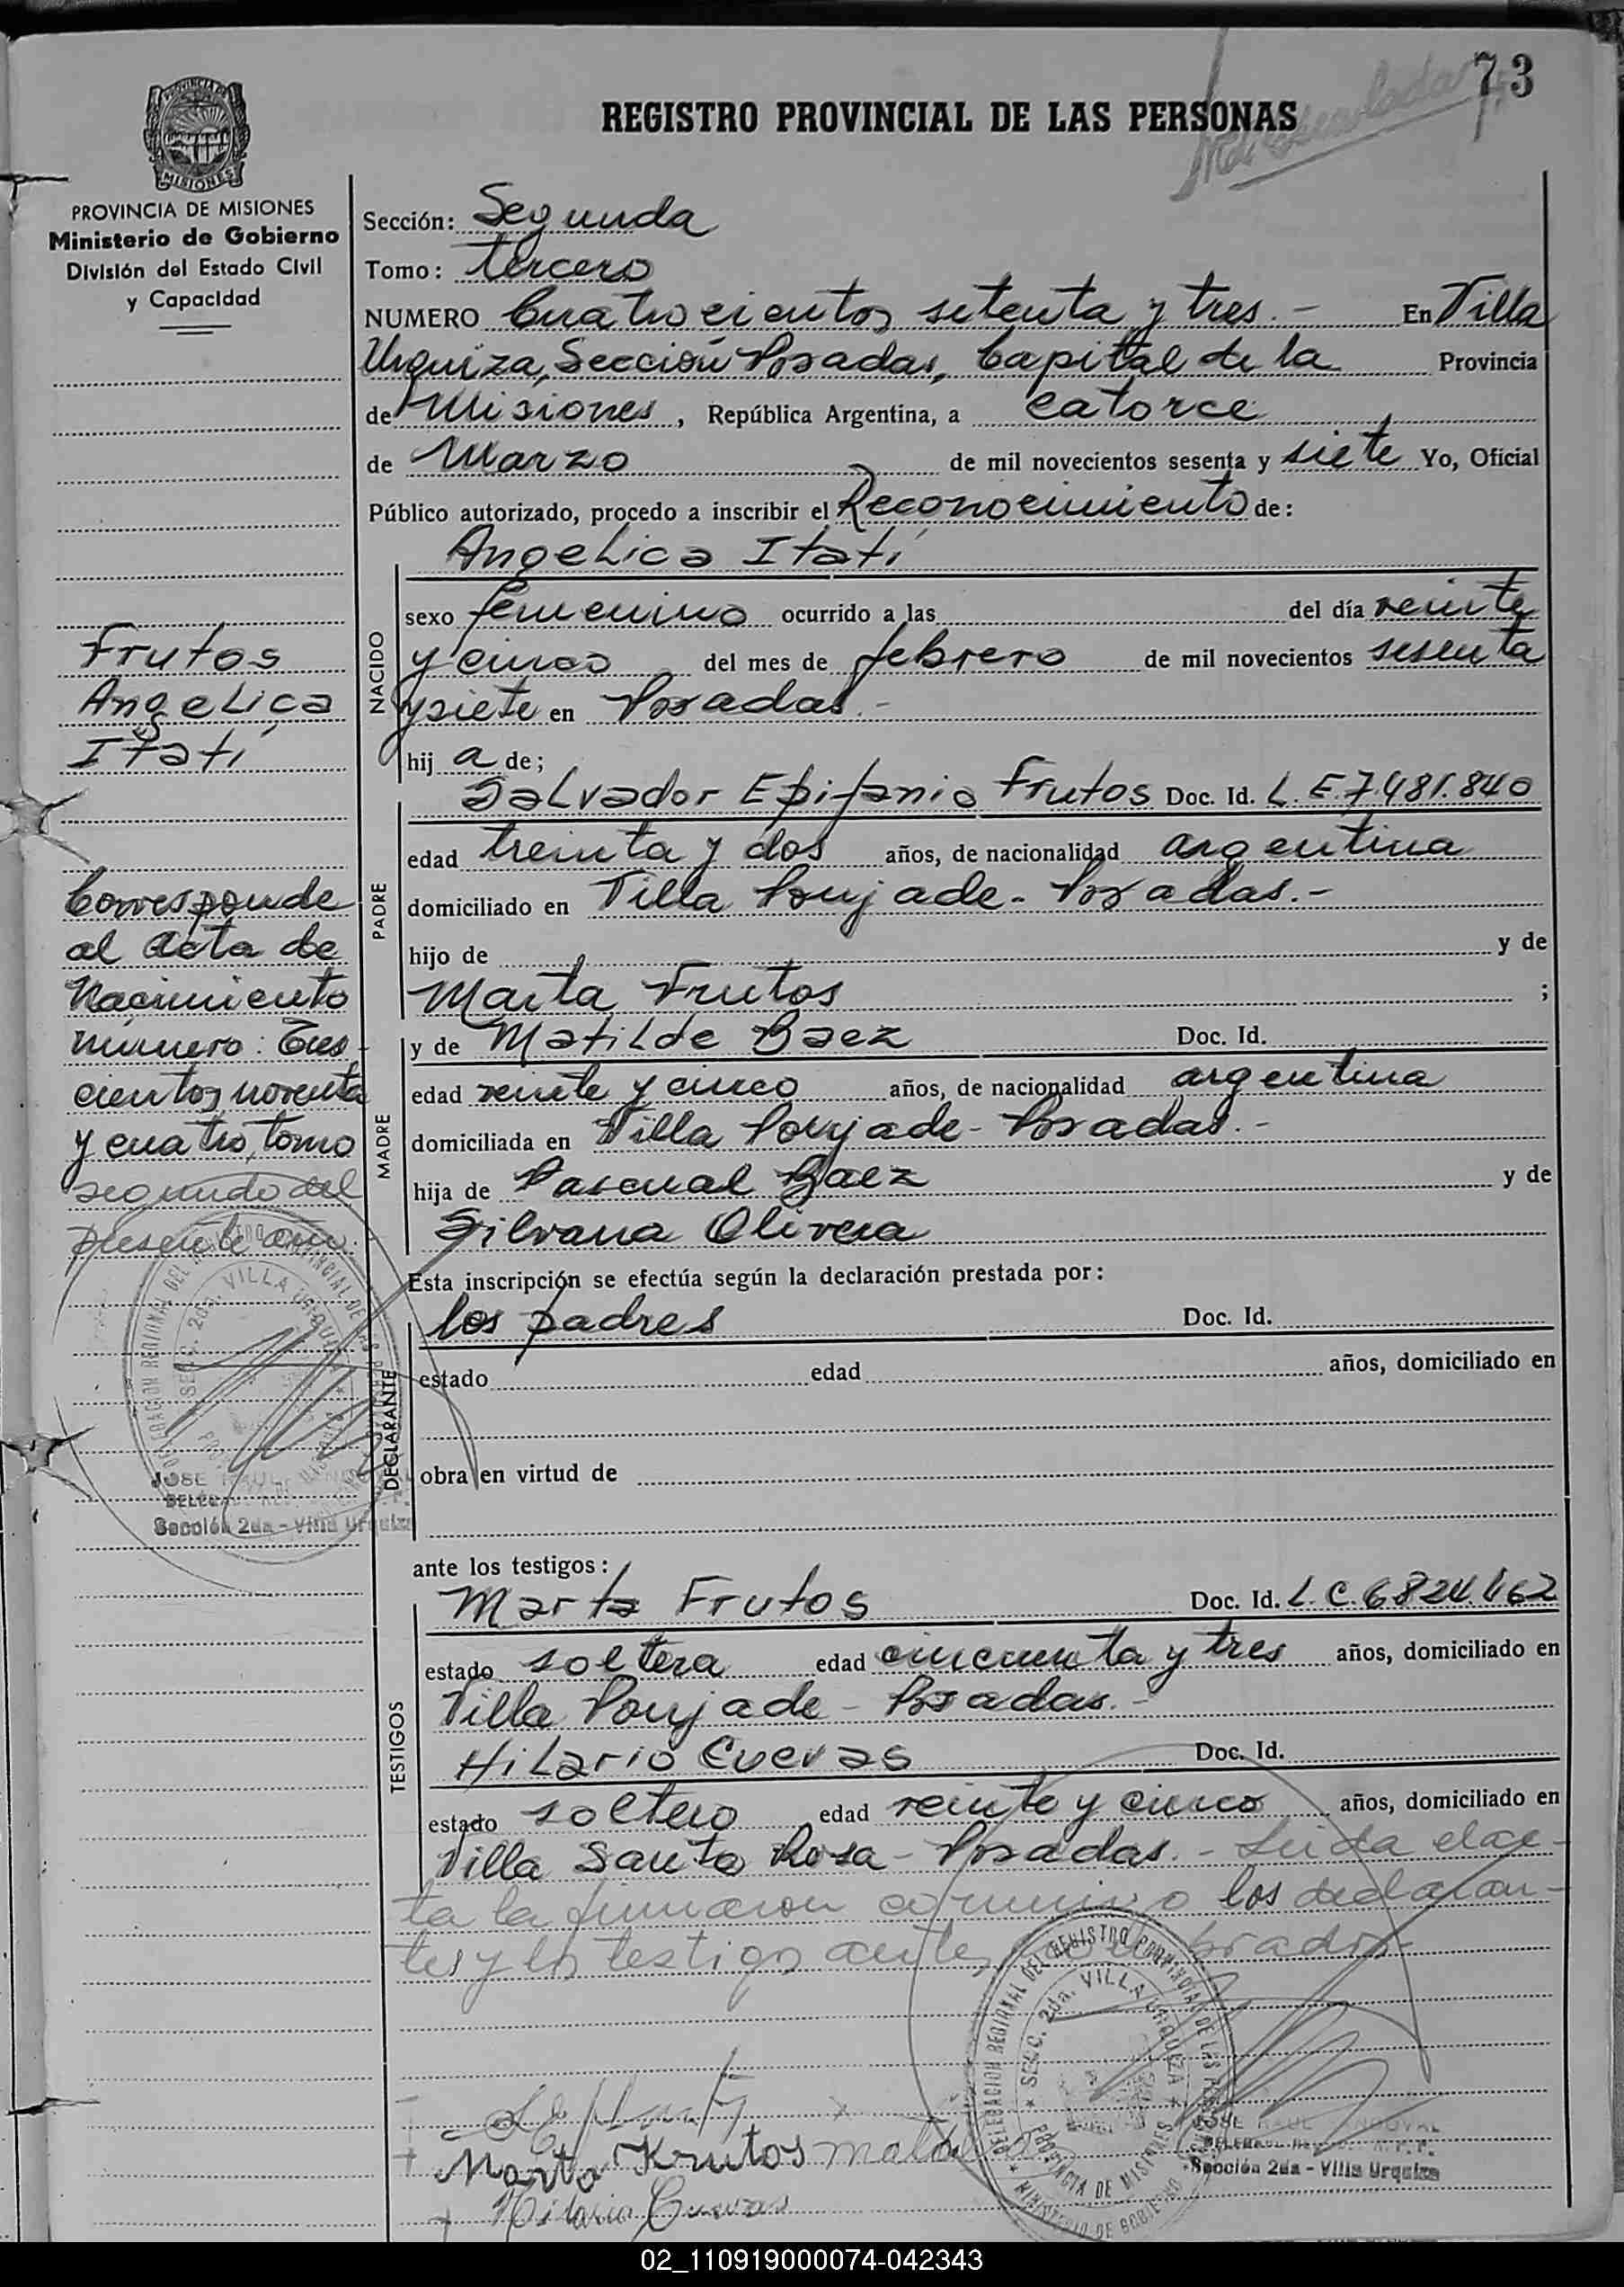 73
REGISTRO PROVINCIAL DE LAS PERSONAS
MISIONES
PROVINCIA DE MISIONES
Ministerio de Gobierno
División del Estado Civil
y Capacidad
Sección: Segunda
Tomo: tercero
NUMERO Cuatrocientos setenta y tres.- En Villa
Urquiza, Sección Posadas, Capital de la Provincia
de Misiones, República Argentina, a catorce
de Marzo de mil novecientos sesenta y siete Yo, Oficial
Público autorizado, procedo a inscribir el Reconocimiento de:
Angelica Itatí
NACIDO
sexo femenino ocurrido a las del día veinte
y cinco del mes de febrero de mil novecientos sesenta
y siete en Posadas.-
hij a de;
Frutos
Angelica
Itatí
PADRE
Salvador Epifanio Frutos Doc. Id. L.E. 7.481.840
edad treinta y dos años, de nacionalidad argentina
domiciliado en Villa Poujade - Posadas.-
hijo de y de
Marta Frutos ;
Corresponde
al Acta de
Nacimiento
número: Tres-
cientos noventa
y cuatro, tomo
segundo del
presente año.
MADRE
y de Matilde Baez Doc. Id.
edad veinte y cinco años, de nacionalidad argentina
domiciliada en Villa Poujade - Posadas.-
hija de Pascual Baez y de
Silvana Olivera
Esta inscripción se efectúa según la declaración prestada por:
DECLARANTE
los padres Doc. Id.
estado edad años, domiciliado en
obra en virtud de
SECC. 2da. VILLA URQUIZA
JOSE RAUL
Sección 2da - Villa Urquiza
ante los testigos:
TESTIGOS
Marta Frutos Doc. Id. L.C. 6824.162
estado soltera edad cincuenta y tres años, domiciliado en
Villa Poujade - Posadas.-
Hilario Cuevas Doc. Id.
estado soltero edad veinte y cinco años, domiciliado en
Villa Santa Rosa - Posadas.- Leida el ac-
ta la firmaron conmigo los declaran-
tes y los testigos antes nombrados
DELEGACION REGIONAL DEL REGISTRO PROVINCIAL DE LAS
SECC. 2da. VILLA URQUIZA
PROVINCIA DE MISIONES
MINISTERIO DE GOBIERNO
JOSE RAUL SANDOVAL
Sección 2da - Villa Urquiza
Marta Frutos
Hilario Cuevas
02_110919000074-042343